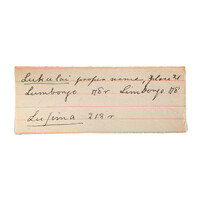 Lukulai proper name, place 21
Lumborgo 178 r Lumborgo 178
Lusima 212 r